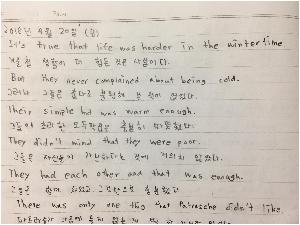 2018년 4월 20일 (금)
It's true that life was harder in the winter time
겨울철 생활이 더 힘든 것은 사실이다.
But they never complained about being cold.
그러나 그들은 춥다고 불평한 적이 없었다.
Their simple hut was warm enough.
그들의 초라한 오두막집은 충분히 따뜻했다.
They didn't mind that they were poor.
그들은 자신들이 가난하다는 것에 개의치 않았다.
They had each other and that was enough.
그들은 함께 있었고 그것만으로 충분했다
There was only one thing that Patrasche didn't like.
파트라슈가